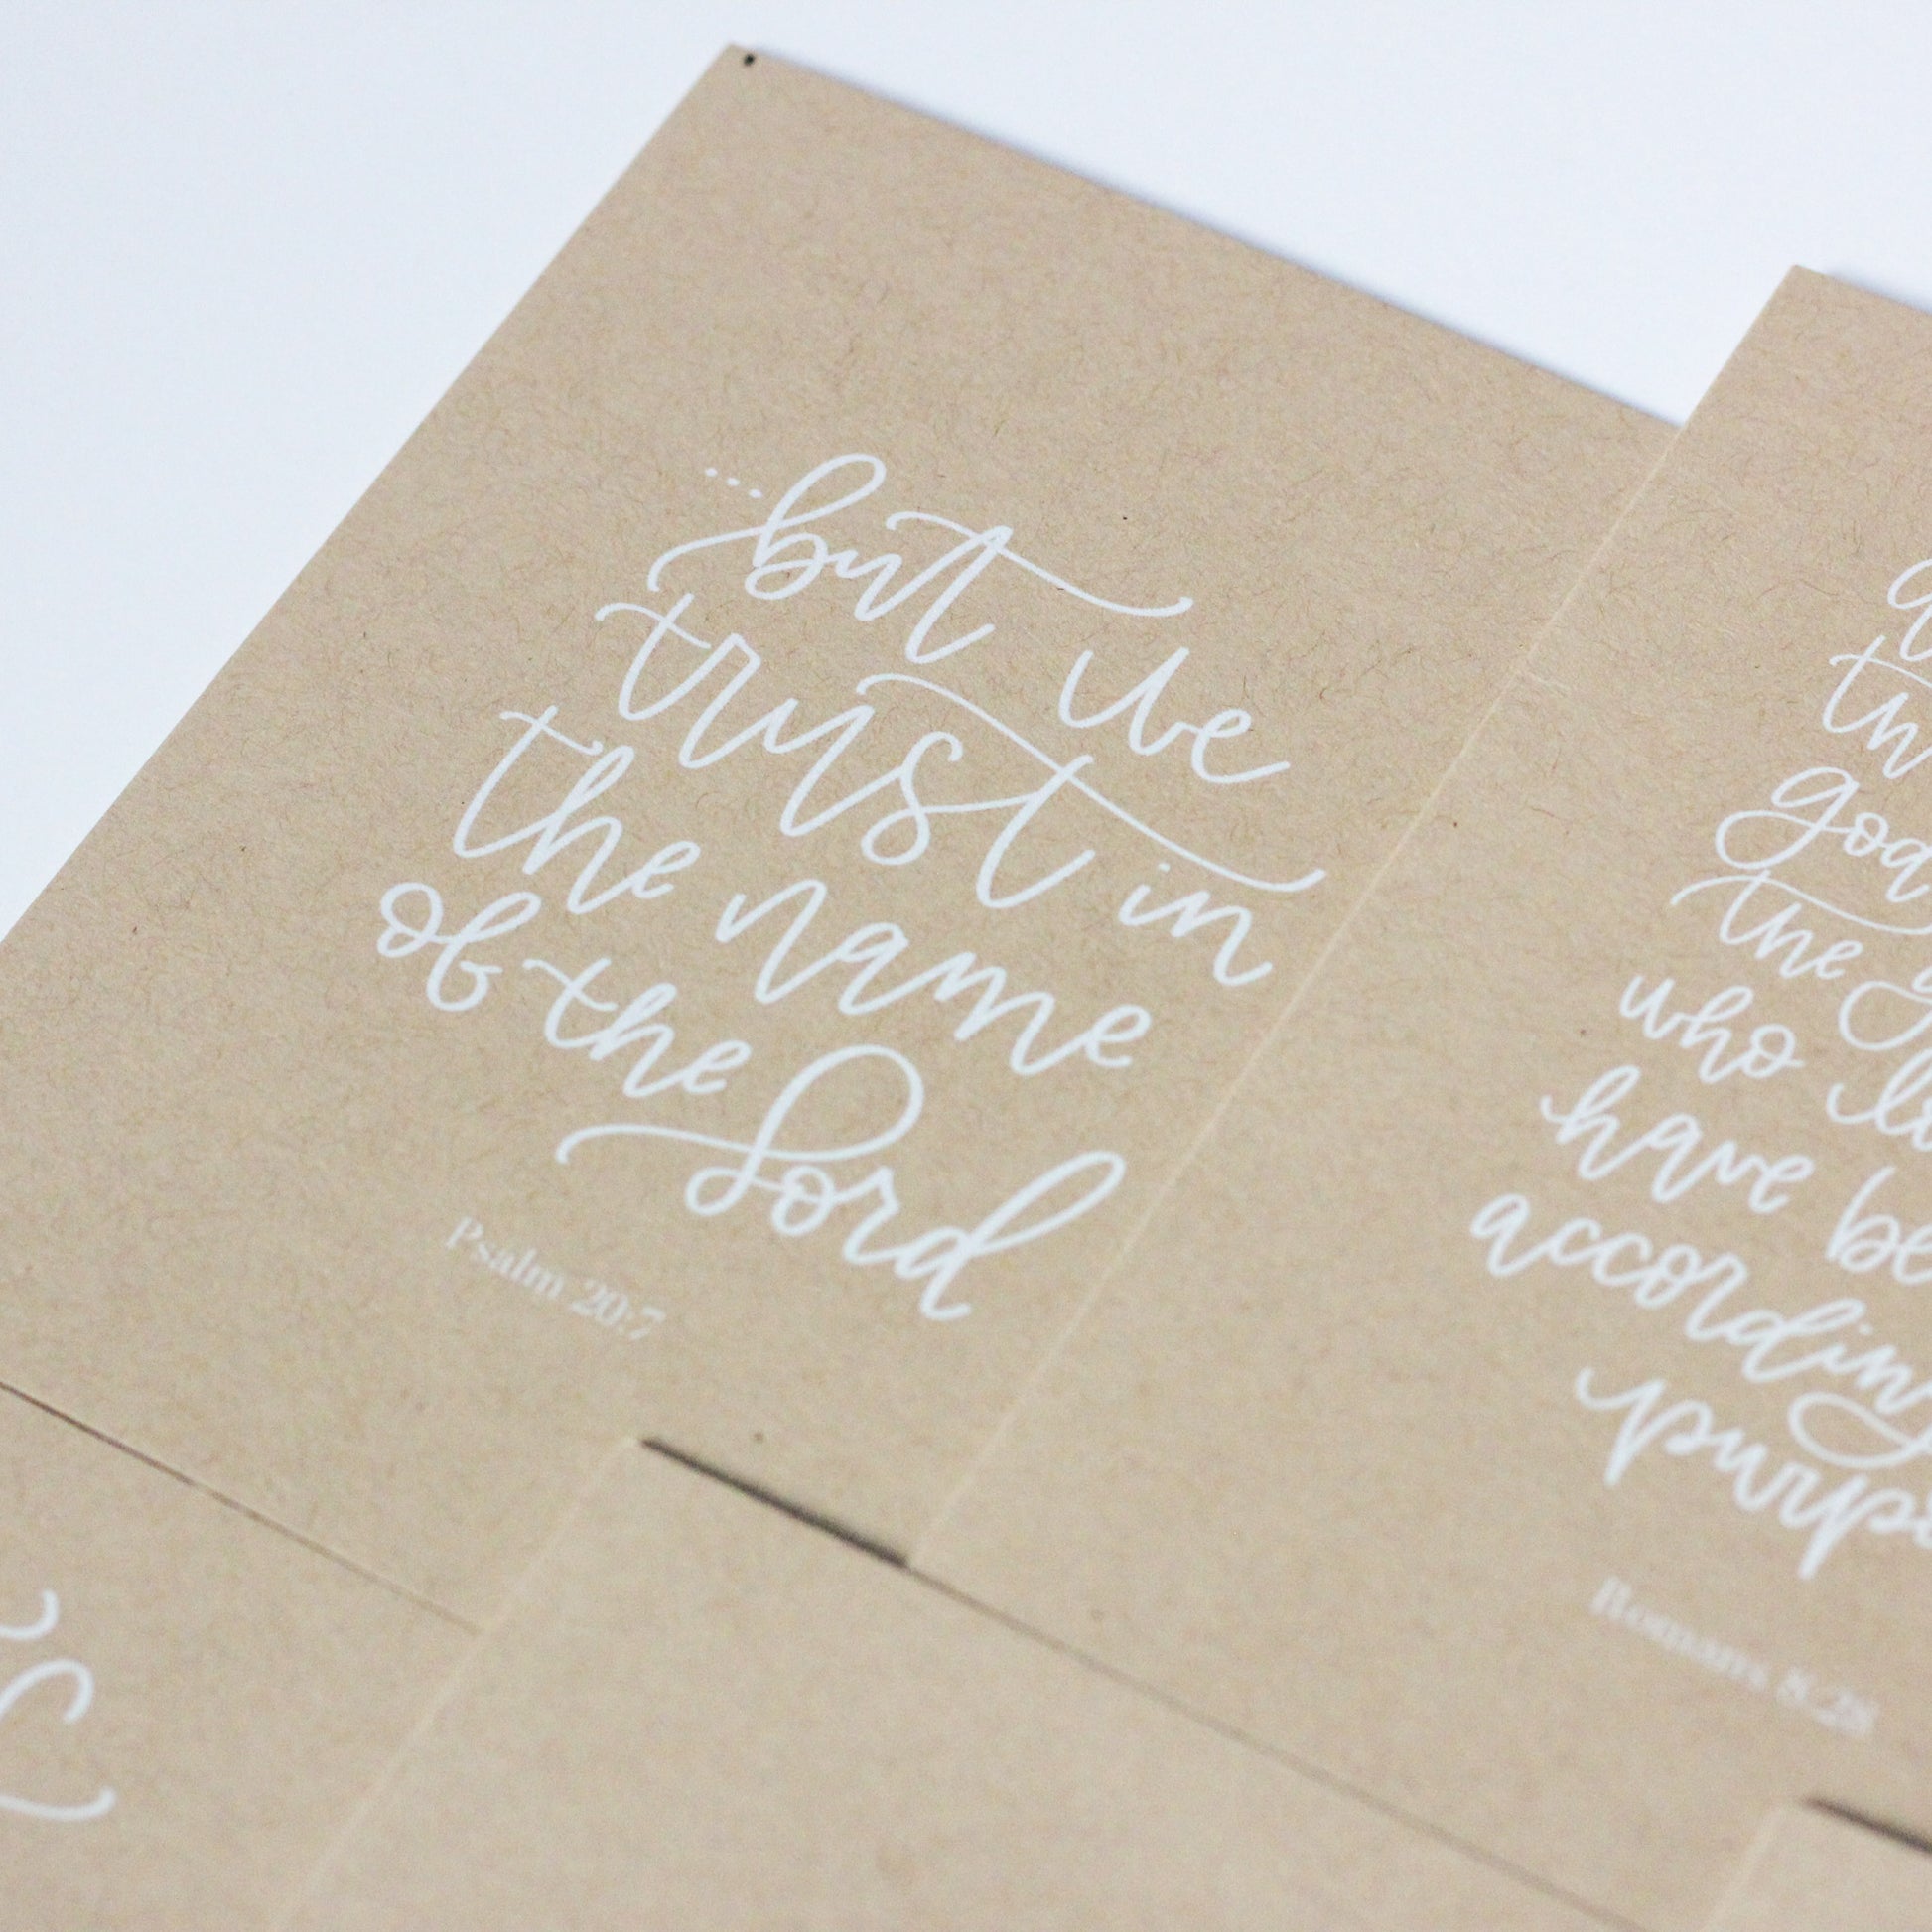 ...but we
trust in
the name
of the Lord
Psalm 20:7
the
who
have be
according
Romans 8:28